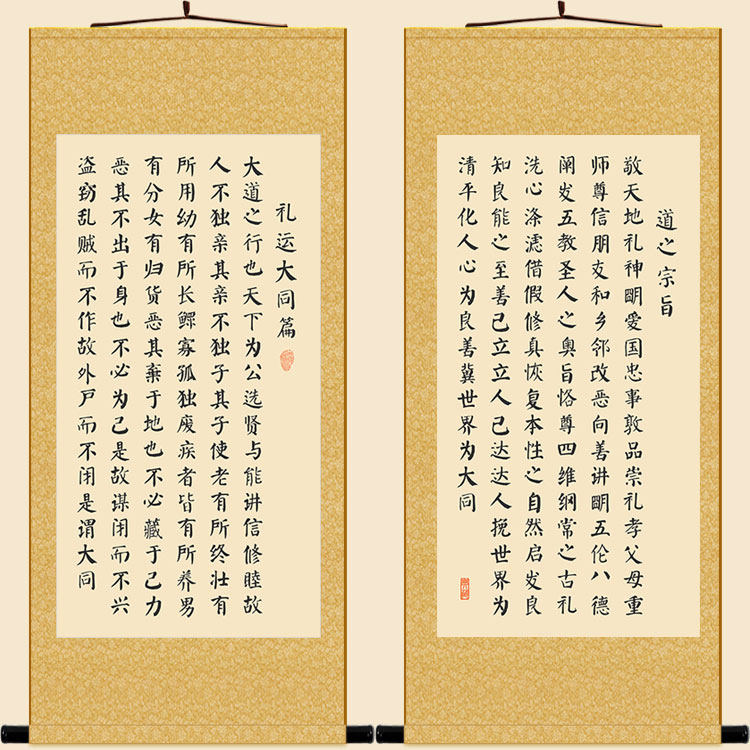 道之宗旨
敬天地礼神明爱国忠事敦品崇礼孝父母重
师尊信朋友和乡邻改恶向善讲明五伦八德
阐发五教圣人之奥旨恪尊四维纲常之古礼
洗心涤滤借假修真恢复本性之自然启发良
知良能之至善己立立人己达达人挽世界为
清平化人心为良善冀世界为大同
礼运大同篇
大道之行也天下为公选贤与能讲信修睦故
人不独亲其亲不独子其子使老有所终壮有
所用幼有所长鳏寡孤独废疾者皆有所养男
有分女有归货恶其棄于地也不必藏于己力
恶其不出于身也不必为己是故谋闭而不兴
盗窃乱贼而不作故外户而不闭是谓大同